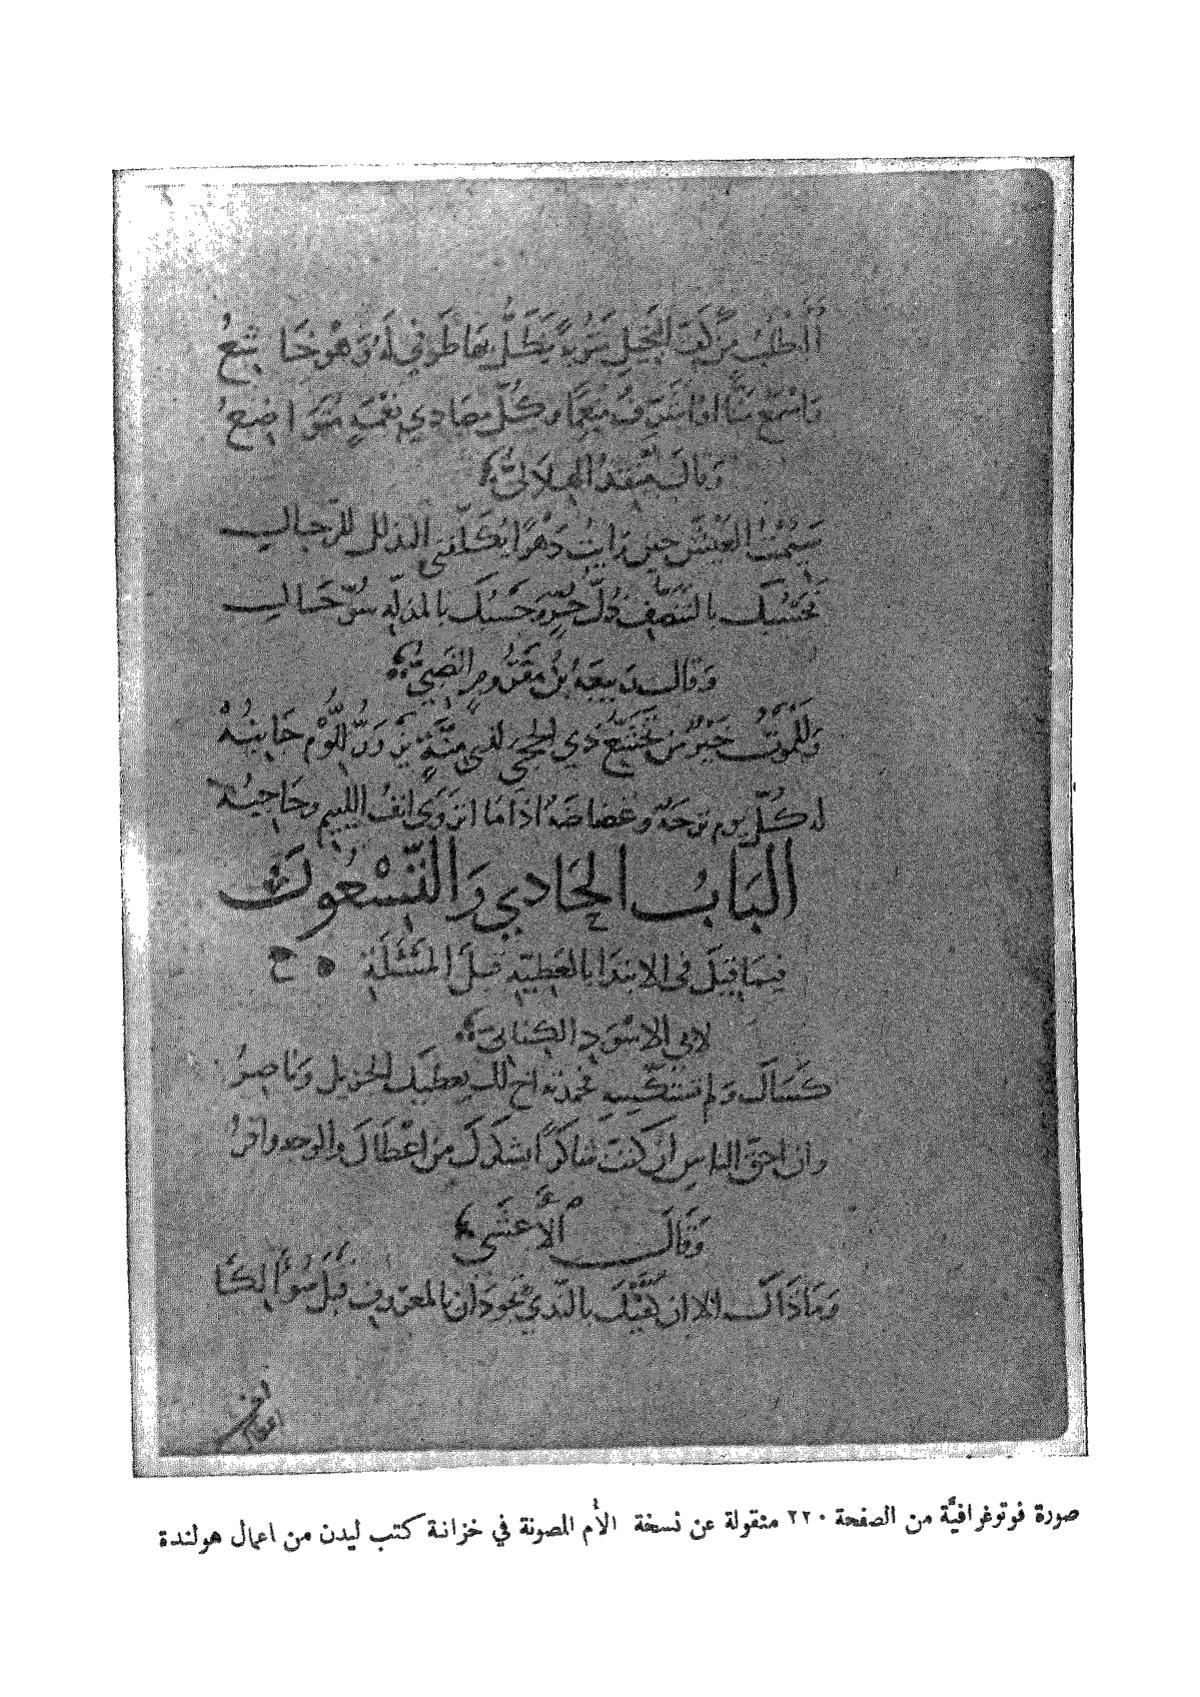 أأطلب من كف البخيل يظل بها طرفي له وهو خاشع
وكل نعمة متواضع
وقال الهلالي
سئمت العيش حين رايت دهرا يكلفني التذلل للرجال
فحسبك بالتنصف ذل حر وحسبك بالمذلة سوء حال
وقال ربيعة بن مقروم الضبي
وللموت خير من تخشع ذي الحجى لذي منة
له كل يوم وغضاضة اذا ما انزوى انف اللئيم وحاجبه
الباب الحادي والتسعون
فيما قيل في الابتدا بالعطية قبل المسئلة
لابي الاسود الكناني
كساك ولم تستكسه فحمدته اخ لك يعطيك الجزيل وناصر
وان احق الناس ان كنت شاكرا بشكرك من اعطاك والوجه وافر
وقال الأعشى
وما ذاك الا ان كفيك بالندى تجودان بالمعروف قبل سؤالكا
صورة فوتوغرافيَّة من الصفحة ٢٢٠ منقولة عن نسخة الأُم المصونة في خزانة كتب ليدن من اعمال هولندة